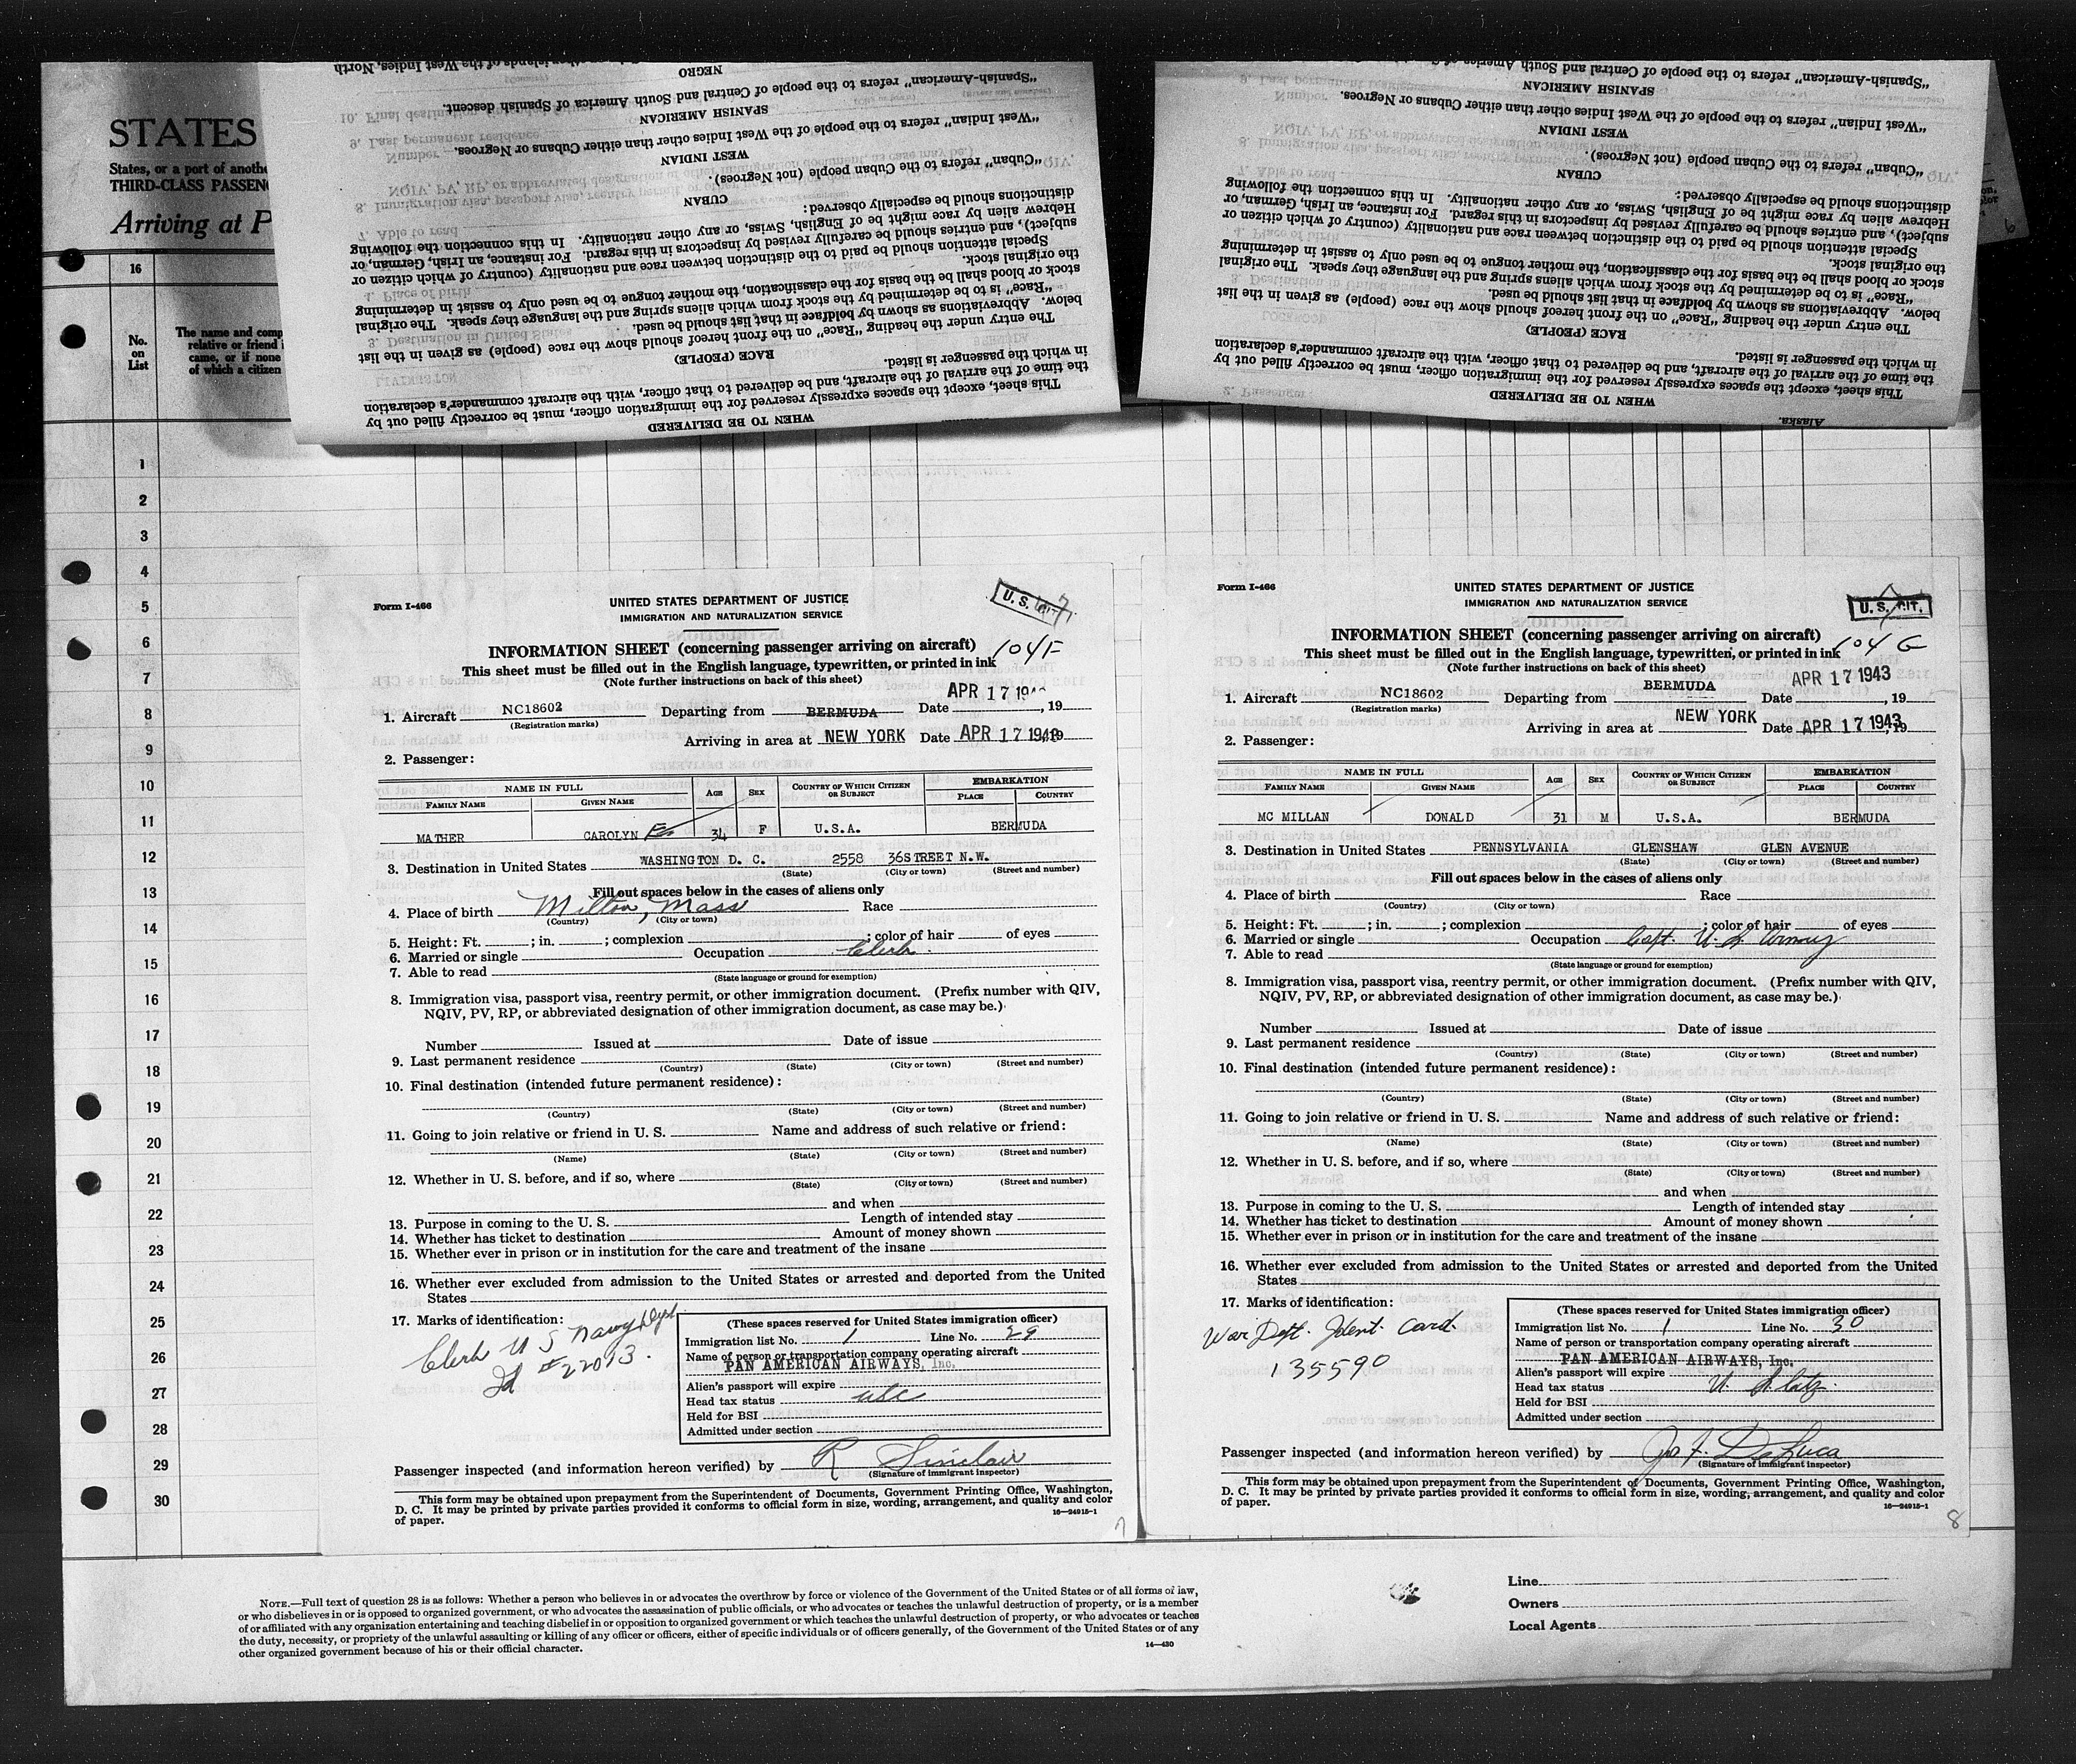 STATES
States, or a part of anothe
THIRD-CLASS PASSEN
Arriving at P
16
No.
on
List
The name and comp
relative or friend i
came, or if none
of which a citizen
1
2
3
4
5
6
7
8
9
10
11
12
13
14
15
16
17
18
19
20
21
22
23
24
25
26
27
28
29
30
WHEN TO BE DELIVERED
This sheet, except the spaces expressly reserved for the immigration officer, must be correctly filled out by
the time of the arrival of the aircraft, and be delivered to that officer, with the aircraft commander's declaration
in which the passenger is listed.
RACE (PEOPLE)
The entry under the heading "Race" on the front hereof should show the race (people) as given in the list
below. Abbreviations as shown by boldface in that list should be used.
"Race" is to be determined by the stock from which aliens spring and the language they speak. The original
stock or blood shall be the basis for the classification, the mother tongue to be used only to assist in determining
the original stock.
Special attention should be paid to the distinction between race and nationality (country of which citizen or
subject), and entries should be carefully revised by inspectors in this regard. For instance, an Irish, German, or
Hebrew alien by race might be of English, Swiss, or any other nationality. In this connection the following
distinctions should be especially observed:
CUBAN
"Cuban" refers to the Cuban people (not Negroes).
WEST INDIAN
"West Indian" refers to the people of the West Indies other than either Cubans or Negroes.
SPANISH AMERICAN
"Spanish-American" refers to the people of Central and South America of Spanish descent.
NEGRO
Alaska.
WHEN TO BE DELIVERED
This sheet, except the spaces expressly reserved for the immigration officer, must be correctly filled out by
the time of the arrival of the aircraft, and be delivered to that officer, with the aircraft commander's declaration
in which the passenger is listed.
RACE (PEOPLE)
The entry under the heading "Race" on the front hereof should show the race (people) as given in the list
below. Abbreviations as shown by boldface in that list should be used.
"Race" is to be determined by the stock from which aliens spring and the language they speak. The original
stock or blood shall be the basis for the classification, the mother tongue to be used only to assist in determining
the original stock.
Special attention should be paid to the distinction between race and nationality (country of which citizen or
subject), and entries should be carefully revised by inspectors in this regard. For instance, an Irish, German, or
Hebrew alien by race might be of English, Swiss, or any other nationality. In this connection the following
distinctions should be especially observed:
CUBAN
"Cuban" refers to the Cuban people (not Negroes).
WEST INDIAN
"West Indian" refers to the people of the West Indies other than either Cubans or Negroes.
SPANISH AMERICAN
"Spanish-American" refers to the people of Central and South America
Form I-466
UNITED STATES DEPARTMENT OF JUSTICE
IMMIGRATION AND NATURALIZATION SERVICE
U. S. CIT.
INFORMATION SHEET (concerning passenger arriving on aircraft)
104F
This sheet must be filled out in the English language, typewritten, or printed in ink
(Note further instructions on back of this sheet)
APR 17 194
1. Aircraft NC18602 Departing from BERMUDA Date , 19
(Registration marks)
Arriving in area at NEW YORK Date APR 17 1943, 19
2. Passenger:
NAME IN FULL AGE SEX COUNTRY OF WHICH CITIZEN OR SUBJECT EMBARKATION
FAMILY NAME GIVEN NAME PLACE COUNTRY
MATHER CAROLYN E 34 F U.S.A. BERMUDA
3. Destination in United States WASHINGTON D. C. 2558 36STREET N.W.
(State) (City or town) (Street and number)
Fill out spaces below in the cases of aliens only
4. Place of birth Milton, Mass Race
(Country) (City or town)
5. Height: Ft. ; in. ; complexion ; color of hair of eyes
6. Married or single Occupation Clerk.
7. Able to read
(State language or ground for exemption)
8. Immigration visa, passport visa, reentry permit, or other immigration document. (Prefix number with QIV,
NQIV, PV, RP, or abbreviated designation of other immigration document, as case may be.)
Number Issued at Date of issue
9. Last permanent residence
(Country) (State) (City or town) (Street and number)
10. Final destination (intended future permanent residence):
(Country) (State) (City or town) (Street and number)
11. Going to join relative or friend in U. S. Name and address of such relative or friend:
(Name) (State) (City or town) (Street and number)
12. Whether in U. S. before, and if so, where
(State) (City or town) (Street and number)
and when
13. Purpose in coming to the U. S. Length of intended stay
14. Whether has ticket to destination Amount of money shown
15. Whether ever in prison or in institution for the care and treatment of the insane
16. Whether ever excluded from admission to the United States or arrested and deported from the United
States
17. Marks of identification:
Clerk U S Navy Dept.
Id #22013.
(These spaces reserved for United States immigration officer)
Immigration list No. 1 Line No. 29
Name of person or transportation company operating aircraft
PAN AMERICAN AIRWAYS, Inc.
Alien's passport will expire
Head tax status usc
Held for BSI
Admitted under section
Passenger inspected (and information hereon verified) by R Sinclair
(Signature of immigrant inspector)
This form may be obtained upon prepayment from the Superintendent of Documents, Government Printing Office, Washington,
D. C. It may be printed by private parties provided it conforms to official form in size, wording, arrangement, and quality and color
of paper.
16—24915-1
7
Form I-466
UNITED STATES DEPARTMENT OF JUSTICE
IMMIGRATION AND NATURALIZATION SERVICE
U. S. CIT.
INFORMATION SHEET (concerning passenger arriving on aircraft)
104 G
This sheet must be filled out in the English language, typewritten, or printed in ink
(Note further instructions on back of this sheet)
APR 17 1943
1. Aircraft NC18602 Departing from BERMUDA Date , 19
(Registration marks)
Arriving in area at NEW YORK Date APR 17 1943, 19
2. Passenger:
NAME IN FULL AGE SEX COUNTRY OF WHICH CITIZEN OR SUBJECT EMBARKATION
FAMILY NAME GIVEN NAME PLACE COUNTRY
MC MILLAN DONALD 31 M U.S.A. BERMUDA
3. Destination in United States PENNSYLVANIA GLENSHAW GLEN AVENUE
(State) (City or town) (Street and number)
Fill out spaces below in the cases of aliens only
4. Place of birth Race
(Country) (City or town)
5. Height: Ft. ; in. ; complexion ; color of hair of eyes
6. Married or single Occupation Capt. U. S. Army
7. Able to read
(State language or ground for exemption)
8. Immigration visa, passport visa, reentry permit, or other immigration document. (Prefix number with QIV,
NQIV, PV, RP, or abbreviated designation of other immigration document, as case may be.)
Number Issued at Date of issue
9. Last permanent residence
(Country) (State) (City or town) (Street and number)
10. Final destination (intended future permanent residence):
(Country) (State) (City or town) (Street and number)
11. Going to join relative or friend in U. S. Name and address of such relative or friend:
(Name) (State) (City or town) (Street and number)
12. Whether in U. S. before, and if so, where
(State) (City or town) (Street and number)
and when
13. Purpose in coming to the U. S. Length of intended stay
14. Whether has ticket to destination Amount of money shown
15. Whether ever in prison or in institution for the care and treatment of the insane
16. Whether ever excluded from admission to the United States or arrested and deported from the United
States
17. Marks of identification:
War Dept. Ident. Card.
135590
(These spaces reserved for United States immigration officer)
Immigration list No. 1 Line No. 30
Name of person or transportation company operating aircraft
PAN AMERICAN AIRWAYS, Inc.
Alien's passport will expire
Head tax status U. S. Citz.
Held for BSI
Admitted under section
Passenger inspected (and information hereon verified) by Jos. F. DeLuca
(Signature of immigrant inspector)
This form may be obtained upon prepayment from the Superintendent of Documents, Government Printing Office, Washington,
D. C. It may be printed by private parties provided it conforms to official form in size, wording, arrangement, and quality and color
of paper.
16—24915-1
8
NOTE.—Full text of question 28 is as follows: Whether a person who believes in or advocates the overthrow by force or violence of the Government of the United States or of all forms of law,
or who disbelieves in or is opposed to organized government, or who advocates the assassination of public officials, or who advocates or teaches the unlawful destruction of property, or is a member
of or affiliated with any organization entertaining and teaching disbelief in or opposition to organized government or which teaches the unlawful destruction of property, or who advocates or teaches
the duty, necessity, or propriety of the unlawful assaulting or killing of any officer or officers, either of specific individuals or of officers generally, of the Government of the United States or of any
other organized government because of his or their official character.
14—430
Line
Owners
Local Agents